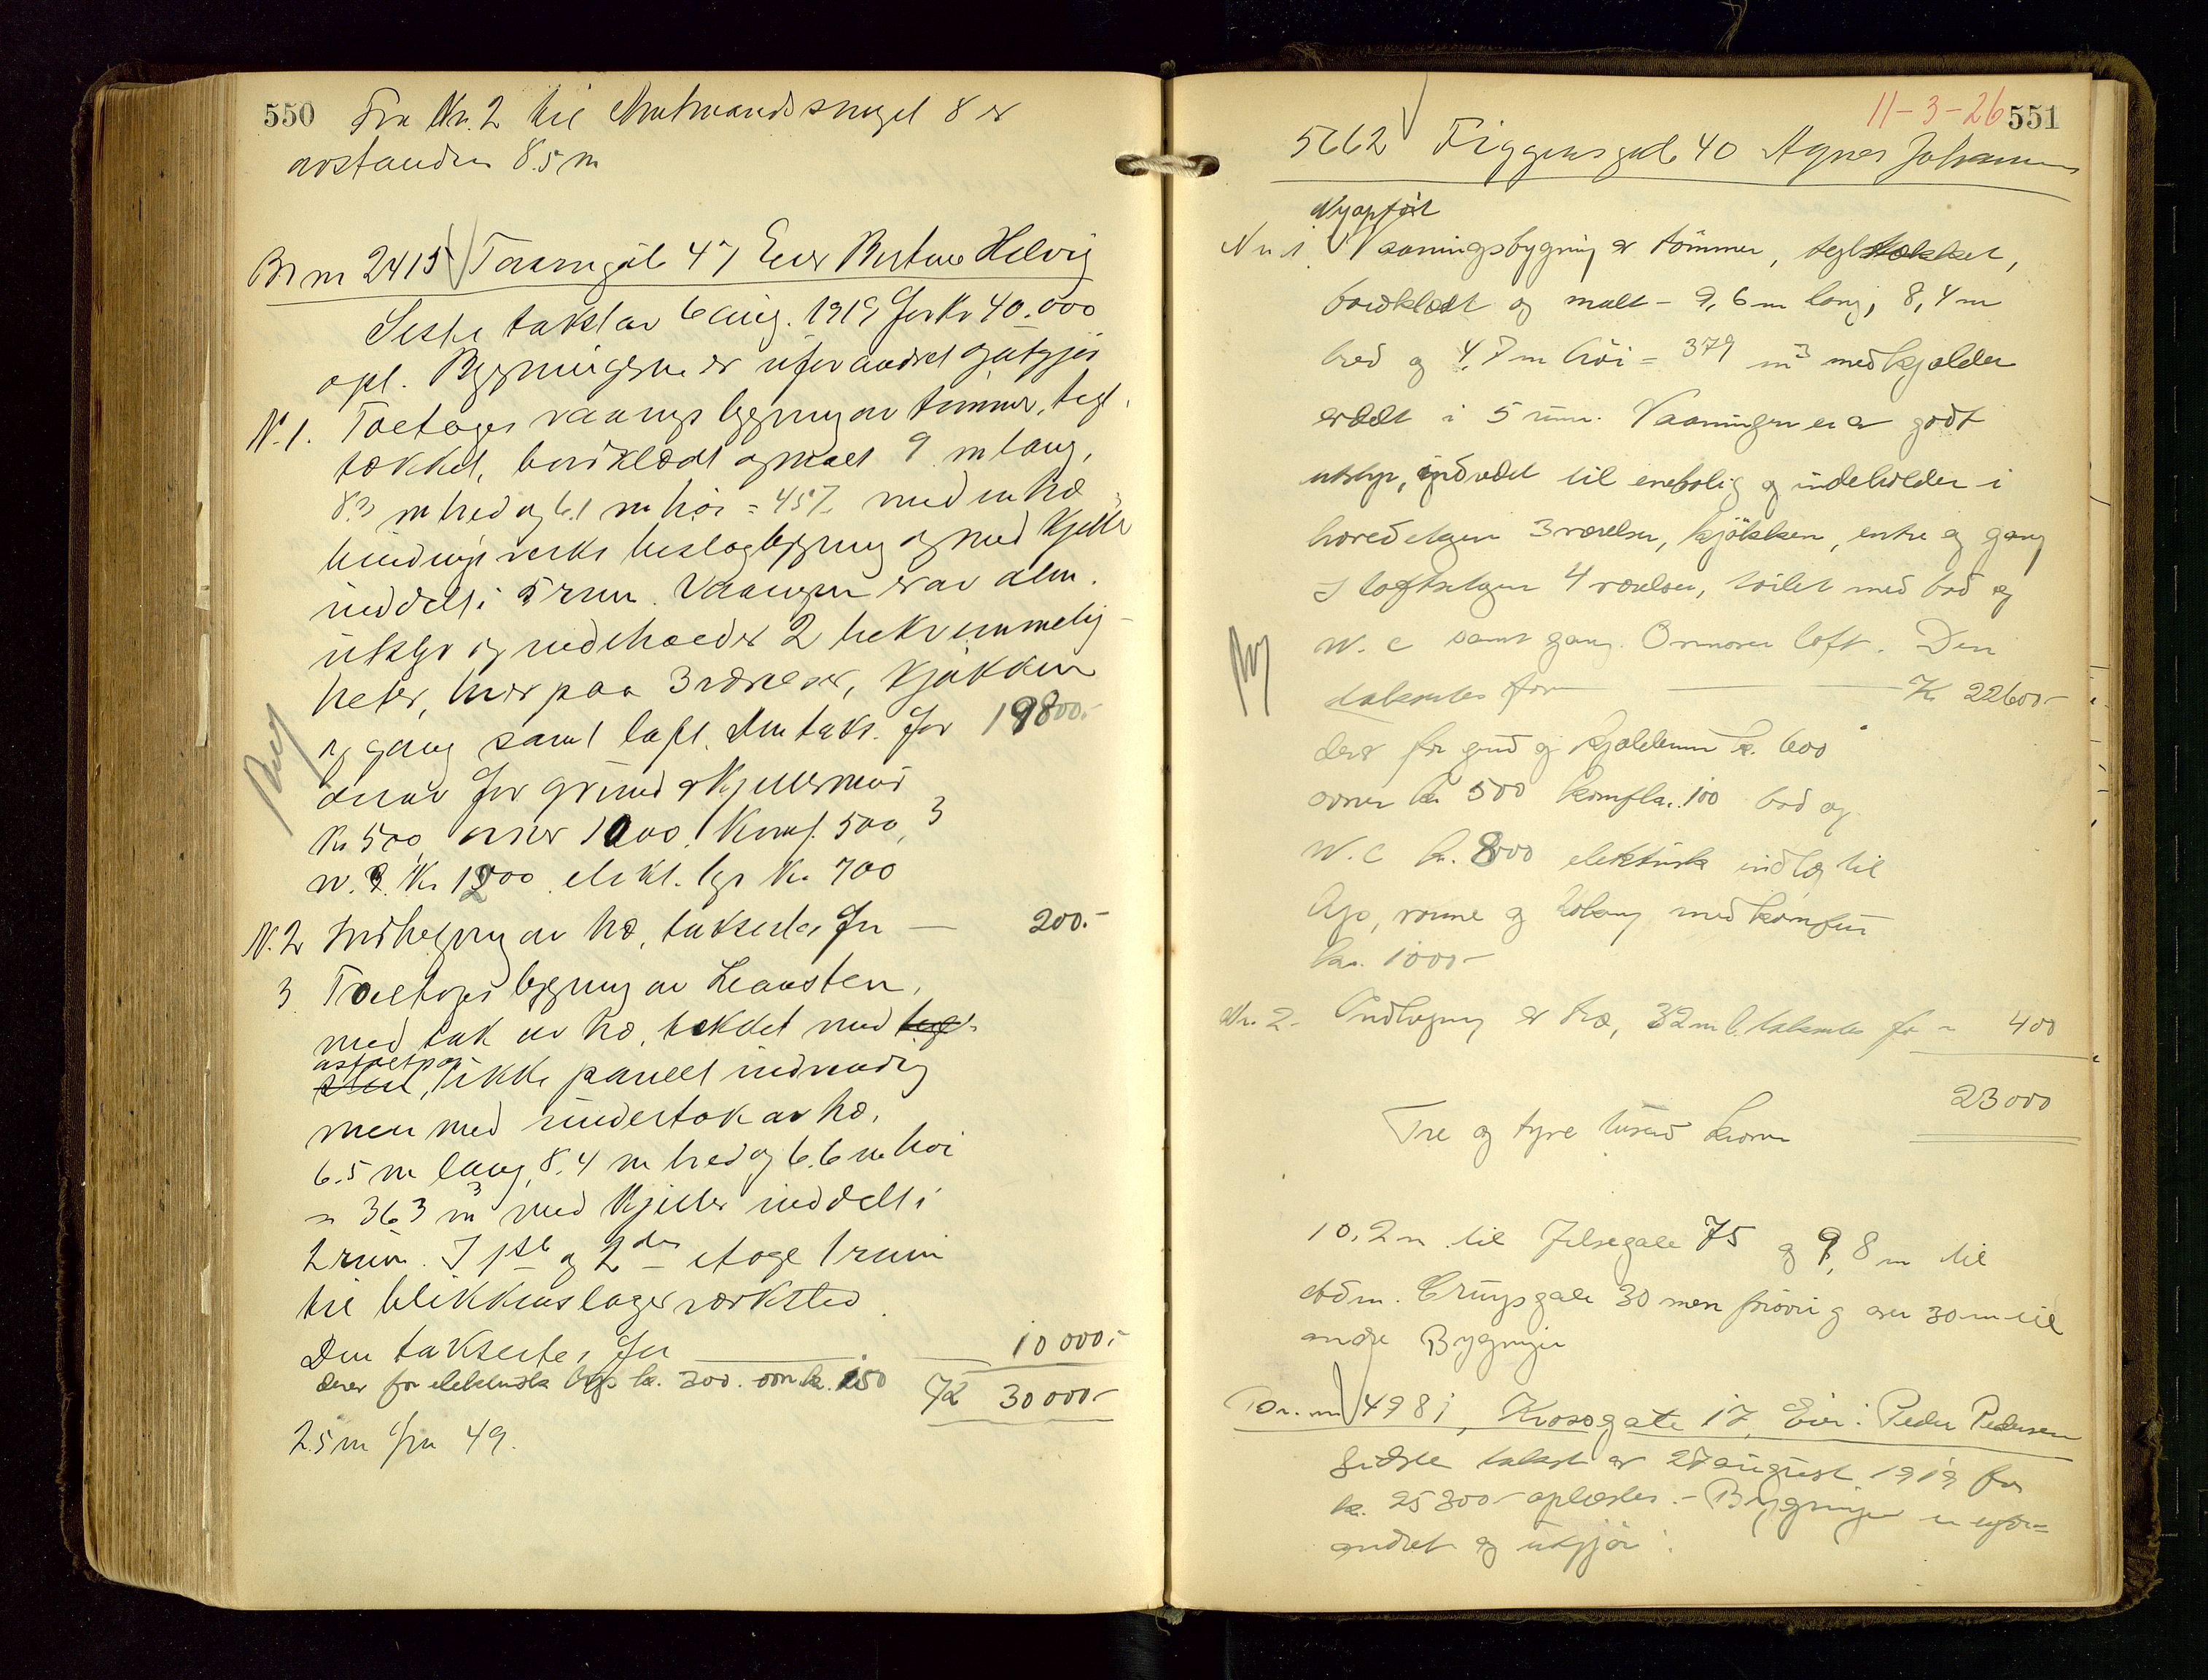 550 Fra Nr. 2 til Amtmandssmuget 8 er
avstanden 8.5 m
Br nr 2415 Taarngåt 47 Eier Helvig
Siste takst av 6 aug. 1919 for kr 40.000
opl. Bygningerne er uforandret og utgjør
N. 1. Toetages vaanings bygning av tømmer, tegl.
tækket, bordklædt og malt 9 m lang,
8.3 m bred og 6.1 m høi = 457 med en træ
bindings verks beslag bygning og med kjelder
inddelt i 5 rum. Vaaningen er av alm.
utstyr og indeholder 2 bekvemmelig-
heter, hver paa 3 værelser, kjøkken
og gang samt loft. Den taks. for 19800.-
derav for grund og kjeldermur
Kr 500, ovner 1000. Komf. 500, 3
w. c. Kr 1200. elekt. lys Kr. 700
N. 2 Indhegning av træ, takseres for — 200.-
3 Toetages bygning av Leansten,
med tak av træ, tækket med
asfaltpap, ikke panelt indvendig
men med undertak av træ.
6.5 m lang, 8.4 m bred og 6.6 m høi
= 363 m³ med Kjelder inddelt i
2 rum. I 1ste og 2den etage 1 rum
til blikkenslager værksted.
Den takseres for — 10 000.-
derav for elektrisk lys kr. 300. ovn kr. 150 Kr 30 000.-
2.5 m fra 49.
11-3-26 551
5662 Figgensgate 40 Agnes Johannesen
Nyopført
Nr. 1. Vaaningsbygning av tømmer, tegltækket,
bordklædt og malt - 9,6 m lang, 8,4 m
bred og 4,7 m høi = 379 m³ med kjælder
avdelt i 5 rum. Vaaningen er av godt
utstyr, indredet til enebolig og indeholder i
hovedetagen 3 værelser, kjøkken, entre og gang
I loftsetagen 4 værelser, toilet med bad og
W. C samt gang. Ovenover loft. Den
takseres for — K 22600-
derav for grund og kjældermur kr. 600
ovner kr 500 komfkr. 100 bad og
W. C kr. 8000 elektrisk indlæg til
lys, varme og kokning med komfur
kr. 1000-
Nr. 2- Indhegning av træ, 32 m l. takseres for - 400
23 000
Tre og tyve tusend kroner
10.2 m til Jelsegate 75 og 9,8 m til
Adm. Cruysgate 30 men forøvrig over 30 m til
andre Bygninger
Br. nr 498 i, Krossgate 17, Eier: Peder Pedersen
Sidste takst av 27 august 1919 for
kr. 25300- oplæstes. - Bygningen er ufor=
andret og utgjør: